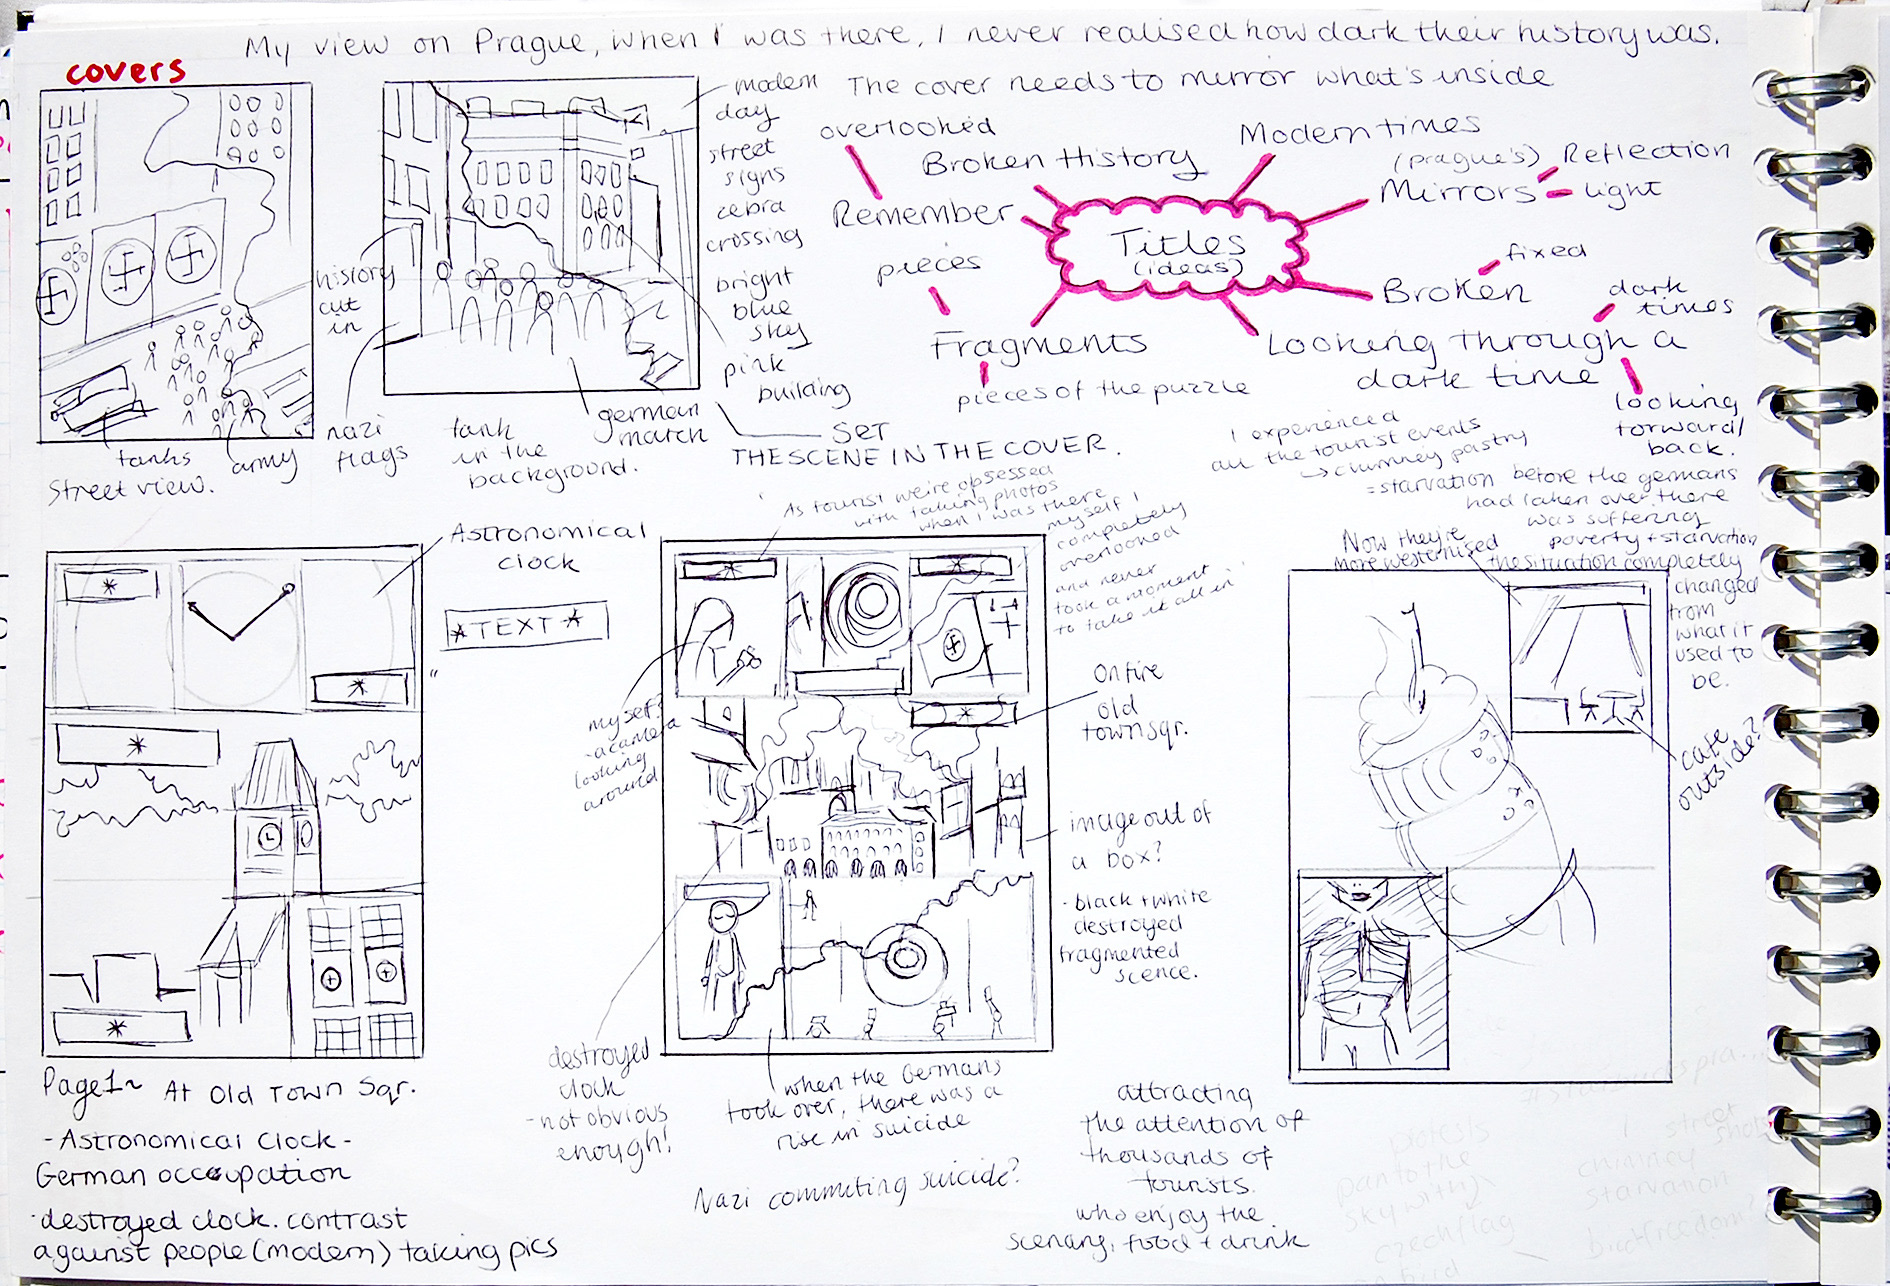 My view on Prague, when I was there, I never realised how dark their history was.
covers
The cover needs to mirror what's inside
modern
day
street
signs
zebra
crossing
bright
blue
sky
pink
building
history
cut
in
nazi
flags
tank
in the
background.
german
march
SET
THE SCENE IN THE COVER.
tanks
army
Street view.
Titles
(ideas)
overlooked
Broken History
Remember
pieces
Fragments
pieces of the puzzle
Modern times
(prague's)
Mirrors
Reflection
light
fixed
Broken
dark
times
Looking through a
dark time
looking
forward/
back.
I experienced
all the tourist events
→ chimney pastry
= starvation before the germans
had taken over there
was suffering
poverty + starvation
the situation completely
changed
from
what it
used to
be.
Now they're
more westernised
cafe
outside?
Astronomical
clock
*TEXT*
"As tourist we're obsessed
with taking photos
when I was there
myself I
completely
overlooked
and never
took a moment
to take it all in"
myself?
-a camera
looking
around
On fire
old
town sqr.
image out of
a box?
- black + white
destroyed
fragmented
scence.
destroyed
clock
- not obvious
enough!
when the Germans
took over, there was a
rise in suicide
Nazi commiting suicide?
attracting
the attention of
thousands of
tourists.
who enjoy the
scenary, food + drink
Page 1~ At Old Town Sqr.
- Astronomical Clock -
German occupation
- destroyed clock. contrast
against people (modern) taking pics
protests
pan to the
sky with
czech flag
street
chimney
starvation